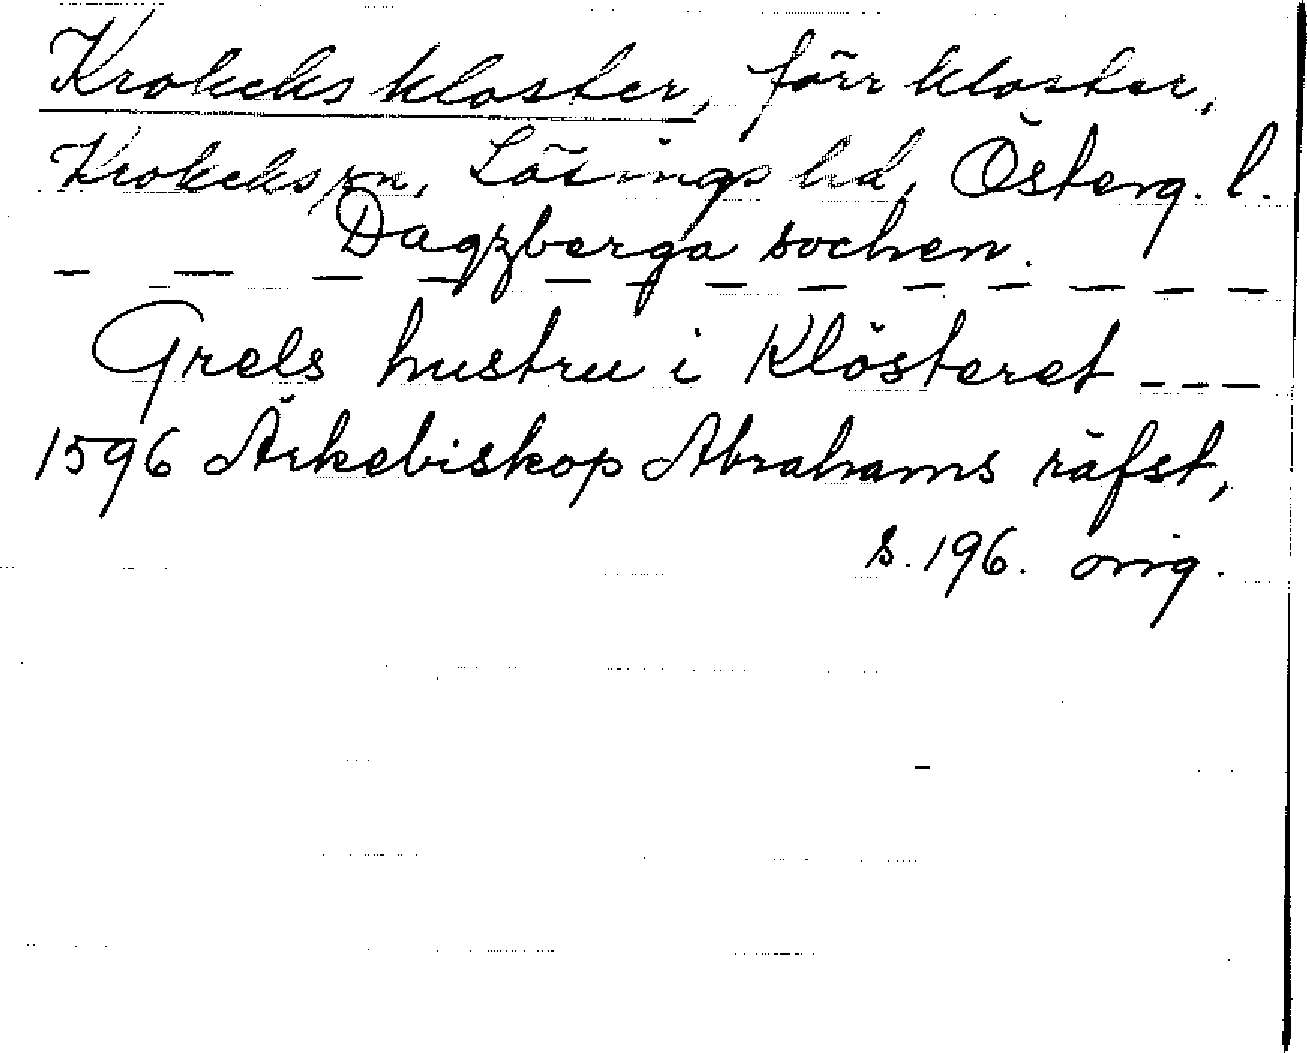 Krokeks kloster, förr kloster,
Krokeks sn, Lösings hd, Österg. l.
Dagzberga sochen.
Grels hustru i Klösteret ---
1596 Ärkebiskop Abrahams räfst,
s. 196. orig.